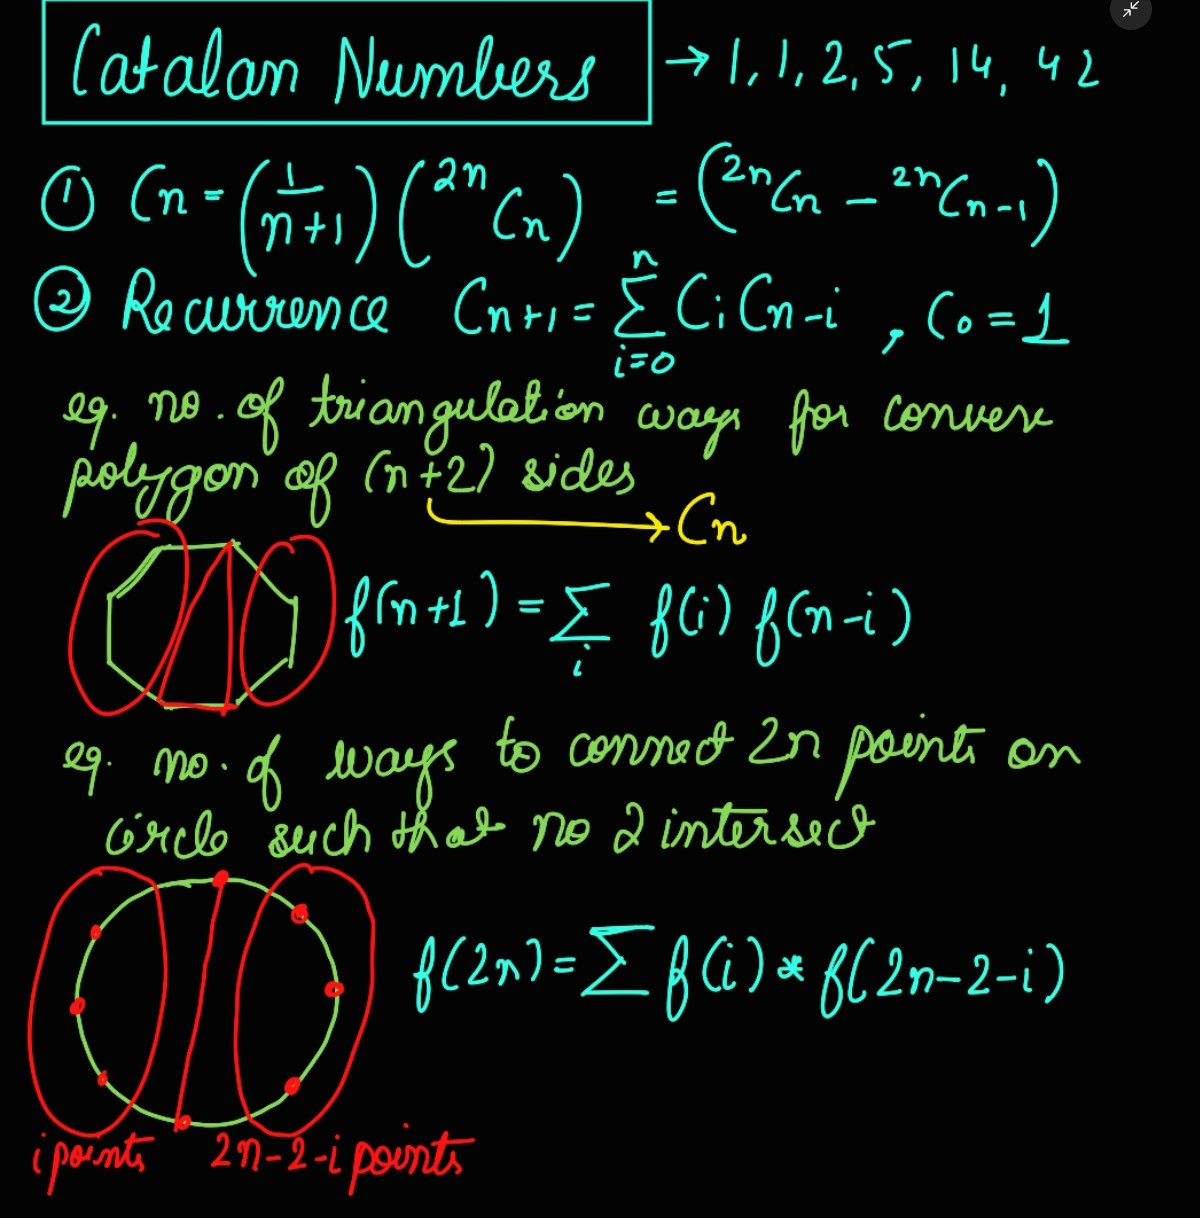 Catalan Numbers → 1, 1, 2, 5, 14, 42
① Cn = (1/n+1) (²ⁿCn) = (²ⁿCn − ²ⁿCn-1)
② Recurrence Cn+1 = n Σ i=0 Ci Cn-i , C0 = 1
eg. no. of triangulation ways for convex
polygon of (n+2) sides
→ Cn
f(n+1) = Σ i f(i) f(n-i)
eg. no. of ways to connect 2n points on
circle such that no 2 intersect
f(2n) = Σ f(i) * f(2n-2-i)
i points 2n-2-i points